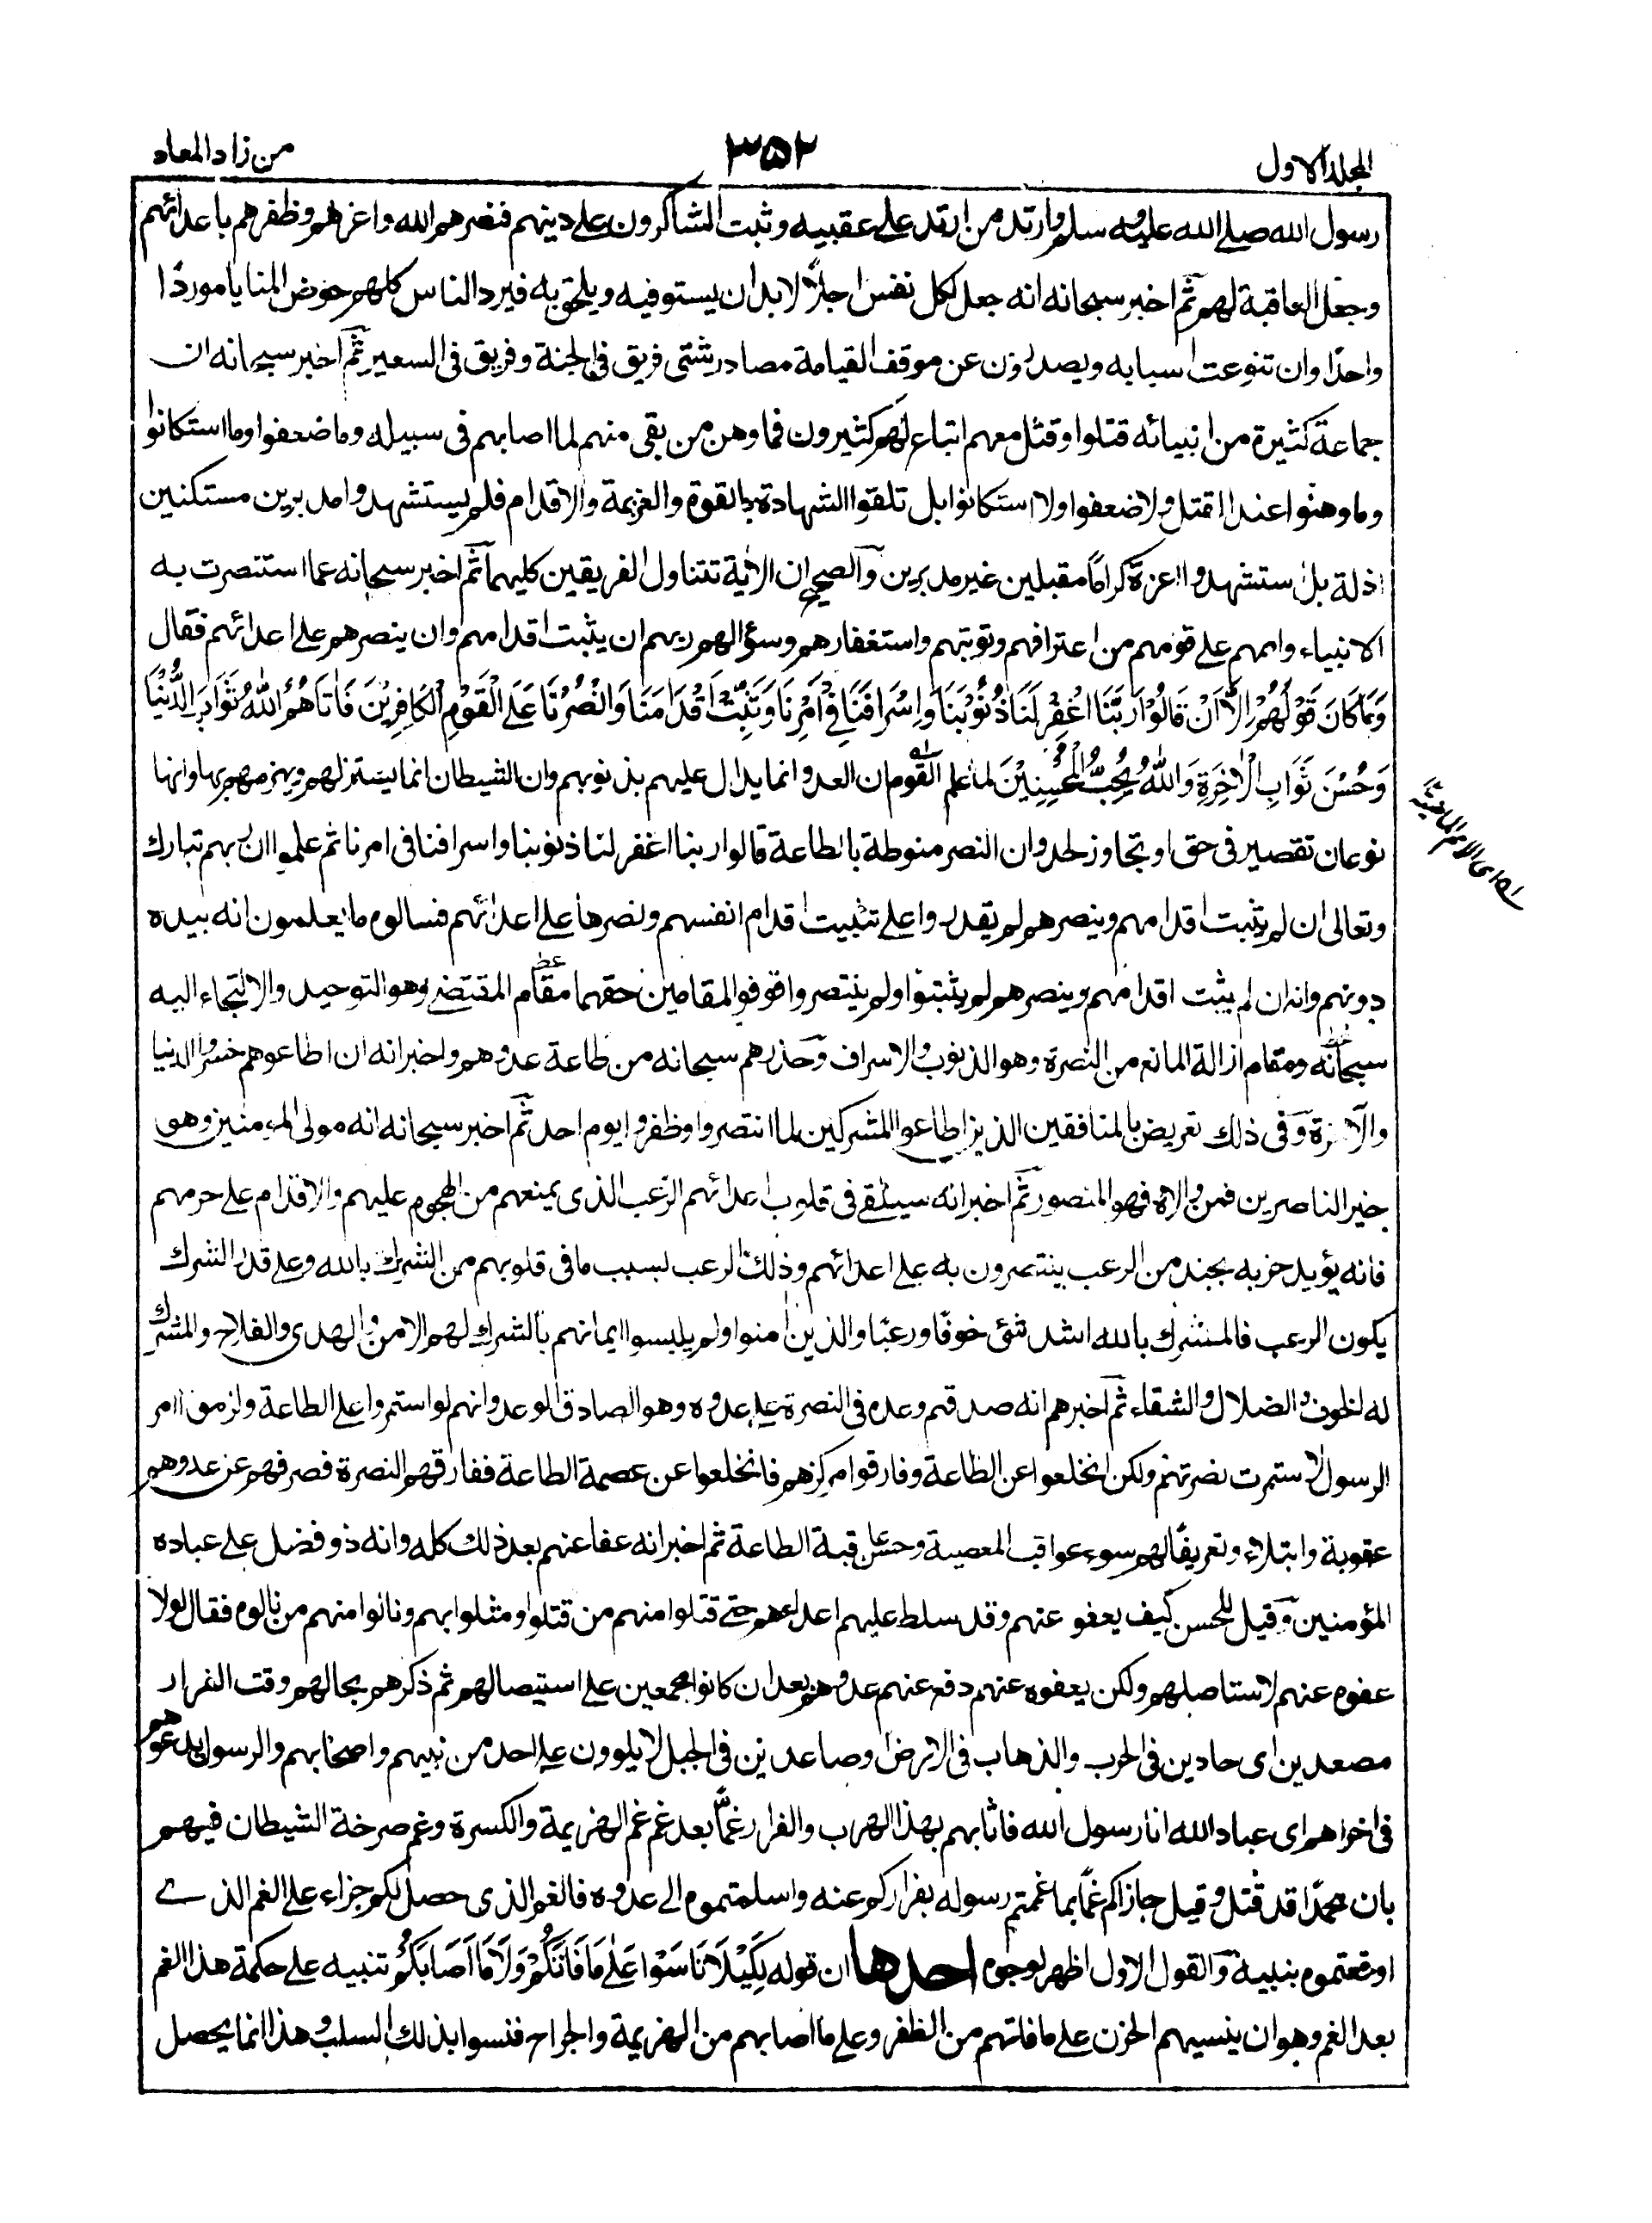 المجلد الاول
٣٥٢
من زاد المعاد
رسول الله صلے الله عليه وسلم وارتد من ارتد علے عقبيه وثبت الشاكرون علے دينهم فنصرهم الله واعزهم وظفرهم باعدائهم
وجعل العاقبة لهم ثم اخبر سبحانه انه جعل لكل نفس اجلًا لا بد ان يستوفيه ويلحق به فيرد الناس كلهم حوض المنايا موردًا
واحدًا وان تنوعت اسبابه ويصدرون عن موقف القيامة مصادر شتى فريق فى الجنة وفريق فى السعير ثم اخبر سبحانه ان
جماعة كثيرة من انبيائه قتلوا وقتل معهم اتباع لهم كثيرون فما وهن من بقى منهم لما اصابهم فى سبيله وما ضعفوا وما استكانوا
وما وهنوا عند القتل ولا ضعفوا ولا استكانوا بل تلقوا الشهادة بالقوة والعزيمة والاقدام فلم يستشهدوا مدبرين مستكنين
اذلة بل استشهدوا اعزة كرامًا مقبلين غير مدبرين والصحيح ان الاٰية تتناول الفريقين كليهما ثم اخبر سبحانه عما استنصرت به
الانبياء واممهم على قومهم من اعترافهم وتوبتهم واستغفارهم وسؤالهم ربهم ان يثبت اقدامهم وان ينصرهم على اعدائهم فقال
وَمَا كَانَ قَوْلَهُمْ اِلَّا اَنْ قَالُوْا رَبَّنَا اغْفِرْ لَنَا ذُنُوْبَنَا وَاِسْرَافَنَا فِيْ اَمْرِنَا وَثَبِّتْ اَقْدَامَنَا وَانْصُرْنَا عَلَى الْقَوْمِ الْكَافِرِيْنَ فَاٰتَاهُمُ اللّٰهُ ثَوَابَ الدُّنْيَا
وَحُسْنَ ثَوَابِ الْاٰخِرَةِ وَاللّٰهُ يُحِبُّ الْمُحْسِنِيْنَ لما علم القوم ان العدو انما يدال عليهم بذنوبهم وان الشيطان انما يستزلهم ويهزمهم بها وانها
نوعان تقصير فى حق او تجاوز لحد وان النصر منوطة بالطاعة قالوا ربنا اغفر لنا ذنوبنا واسرافنا فى امرنا ثم علموا ان ربهم تبارك
وتعالى ان لم يثبت اقدامهم وينصرهم لم يقدروا علے تثبيت اقدام انفسهم ونصرها علے اعدائهم فسالوه ما يعلمون انه بيده
دونهم وانه ان لم يثبت اقدامهم وينصرهم لم يثبتوا ولم ينتصروا فوفوا المقامين حقهما مقام المقتضے وهو التوحيد والالتجاء اليه
سبحانه ومقام ازالة المانع من النصرة وهو الذنوب والاسراف وحذرهم سبحانه من طاعة عدوهم واخبر انه ان اطاعوهم خسروا الدنيا
والاٰخرة وفى ذلك تعريض بالمنافقين الذين اطاعوا المشركين لما انتصروا وظفروا يوم احد ثم اخبر سبحانه انه مولى المؤمنين وهو
خير الناصرين فمن والاه فهو المنصور ثم اخبر انه سيلقے فى قلوب اعدائهم الرعب الذى يمنعهم من الهجوم عليهم والاقدام على حربهم
فانه يؤيد حزبه بجند من الرعب ينتصرون به علے اعدائهم وذلك الرعب بسبب ما فى قلوبهم من الشرك بالله وعلے قدر الشرك
يكون الرعب فالمشرك بالله اشد شئ خوفًا ورعبًا والذين اٰمنوا ولم يلبسوا ايمانهم بالشرك لهم الامن والهدى والفلاح والمشرك
له الخوف والضلال والشقاء ثم اخبرهم انه صدقهم وعده فى النصرة علے عدوه وهو الصادق الوعد وانهم لو استمروا على الطاعة ولزموا امر
الرسول لاستمرت نصرتهم ولكن انخلعوا عن الطاعة وفارقوا مركزهم فانخلعوا عن عصمة الطاعة ففارقهم النصرة فصرفهم عن عدوهم
عقوبة وابتلاء وتعريفًا لهم سوء عواقب المعصية وحسن عاقبة الطاعة ثم اخبر انه عفا عنهم بعد ذلك كله وانه ذو فضل علے عباده
المؤمنين وقيل للحسن كيف يعفو عنهم وقد سلط عليهم اعداءهم حتے قتلوا منهم من قتلوا ومثلوا بهم ونالوا منهم من نالوه فقال لولا
عفوه عنهم لاستاصلهم ولكن بعفوه عنهم دفع عنهم عدوهم بعد ان كانوا مجمعين على استيصالهم ثم ذكرهم بحالهم وقت الفرار
مصعدين اى جادين فى الهرب والذهاب فى الارض او صاعدين فى الجبل لا يلوون علے احد من نبيهم واصحابهم والرسول يدعوهم
فى اخراهم اى عباد الله انا رسول الله فاثابهم بهذا الهرب والفرار غمًّا بعد غم غم الهزيمة والكسرة وغم صرخة الشيطان فيهم
بان محمدًا قد قتل وقيل جازاكم غمًّا بما غممتم رسوله بفراركم عنه واسلمتموه الے عدوه فالغم الذى حصل لكم جزاء على الغم الذے
اوقعتموه بنبيه والقول الاول اظهر لوجوه احدها ان قوله لِكَيْلَا تَاسَوْا عَلٰى مَا فَاتَكُمْ وَلَا مَا اَصَابَكُمْ تنبيه على حكمة هذا الغم
بعد الغم وهو ان ينسيهم الحزن على ما فاتهم من الظفر وعلى ما اصابهم من الهزيمة والجراح فنسوا بذلك السلب وهذا انما يحصل
اى الامم الماضية